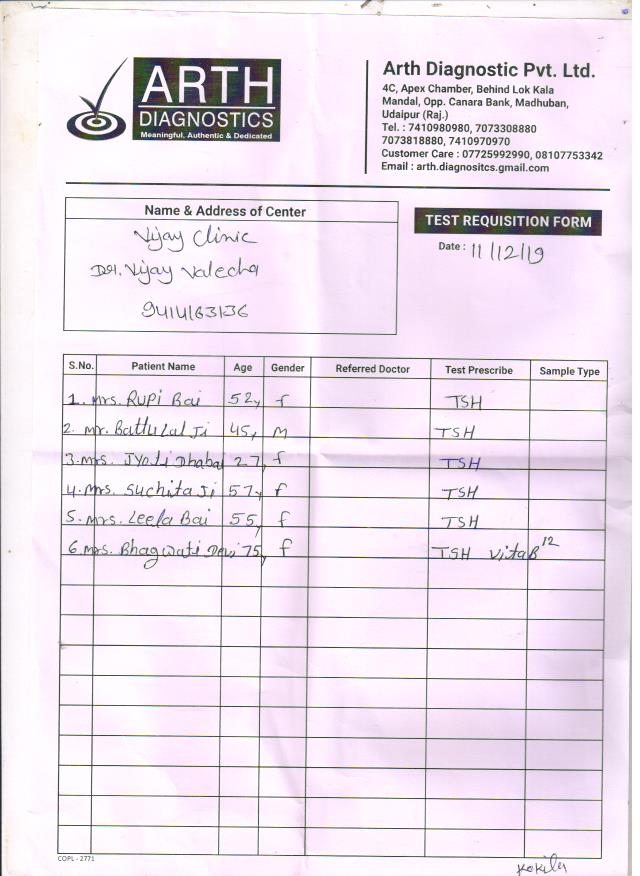 ARTH
DIAGNOSTICS
Meaningful, Authentic & Dedicated
Arth Diagnostic Pvt. Ltd.
4C, Apex Chamber, Behind Lok Kala
Mandal, Opp. Canara Bank, Madhuban,
Udaipur (Raj.)
Tel. : 7410980980, 7073308880
7073818880, 7410970970
Customer Care : 07725992990, 08107753342
Email : arth.diagnositcs.gmail.com
Name & Address of Center
Vijay Clinic
Dr. Vijay Valecha
9414163136
TEST REQUISITION FORM
Date : 11/12/19
S.No. Patient Name Age Gender Referred Doctor Test Prescribe Sample Type
1. Mrs. Rupi Bai 52y f TSH
2. Mr. Battulal Ji 45y M TSH
3. Mrs. Jyoti Dhabai 27y f TSH
4. Mrs. Suchita Ji 57y f TSH
5. Mrs. Leela Bai 55y f TSH
6. Mrs. Bhagwati Devi 75y f TSH Vita B12
COPL - 2771